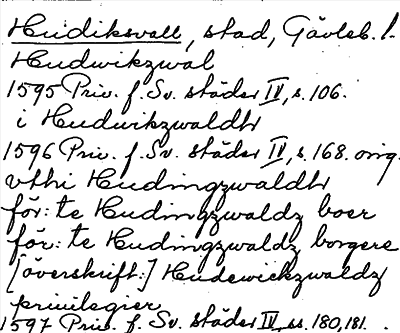 Hudiksvall, stad, Gävleb. l.
Hudwikzwal
1595 Priv. f. Sv. städer IV, s. 106.
i Hudwikzwaldh
1596 Priv. f. Sv. städer IV, s. 168. orig.
vthi Hudingzwaldh
för: te Hudingzwaldz boer
för: te Hudingzwaldz borgere
[överskrift:] Hudewickzwaldz
privilegier
1597 Priv. f. Sv. städer IV, ss. 180, 181.